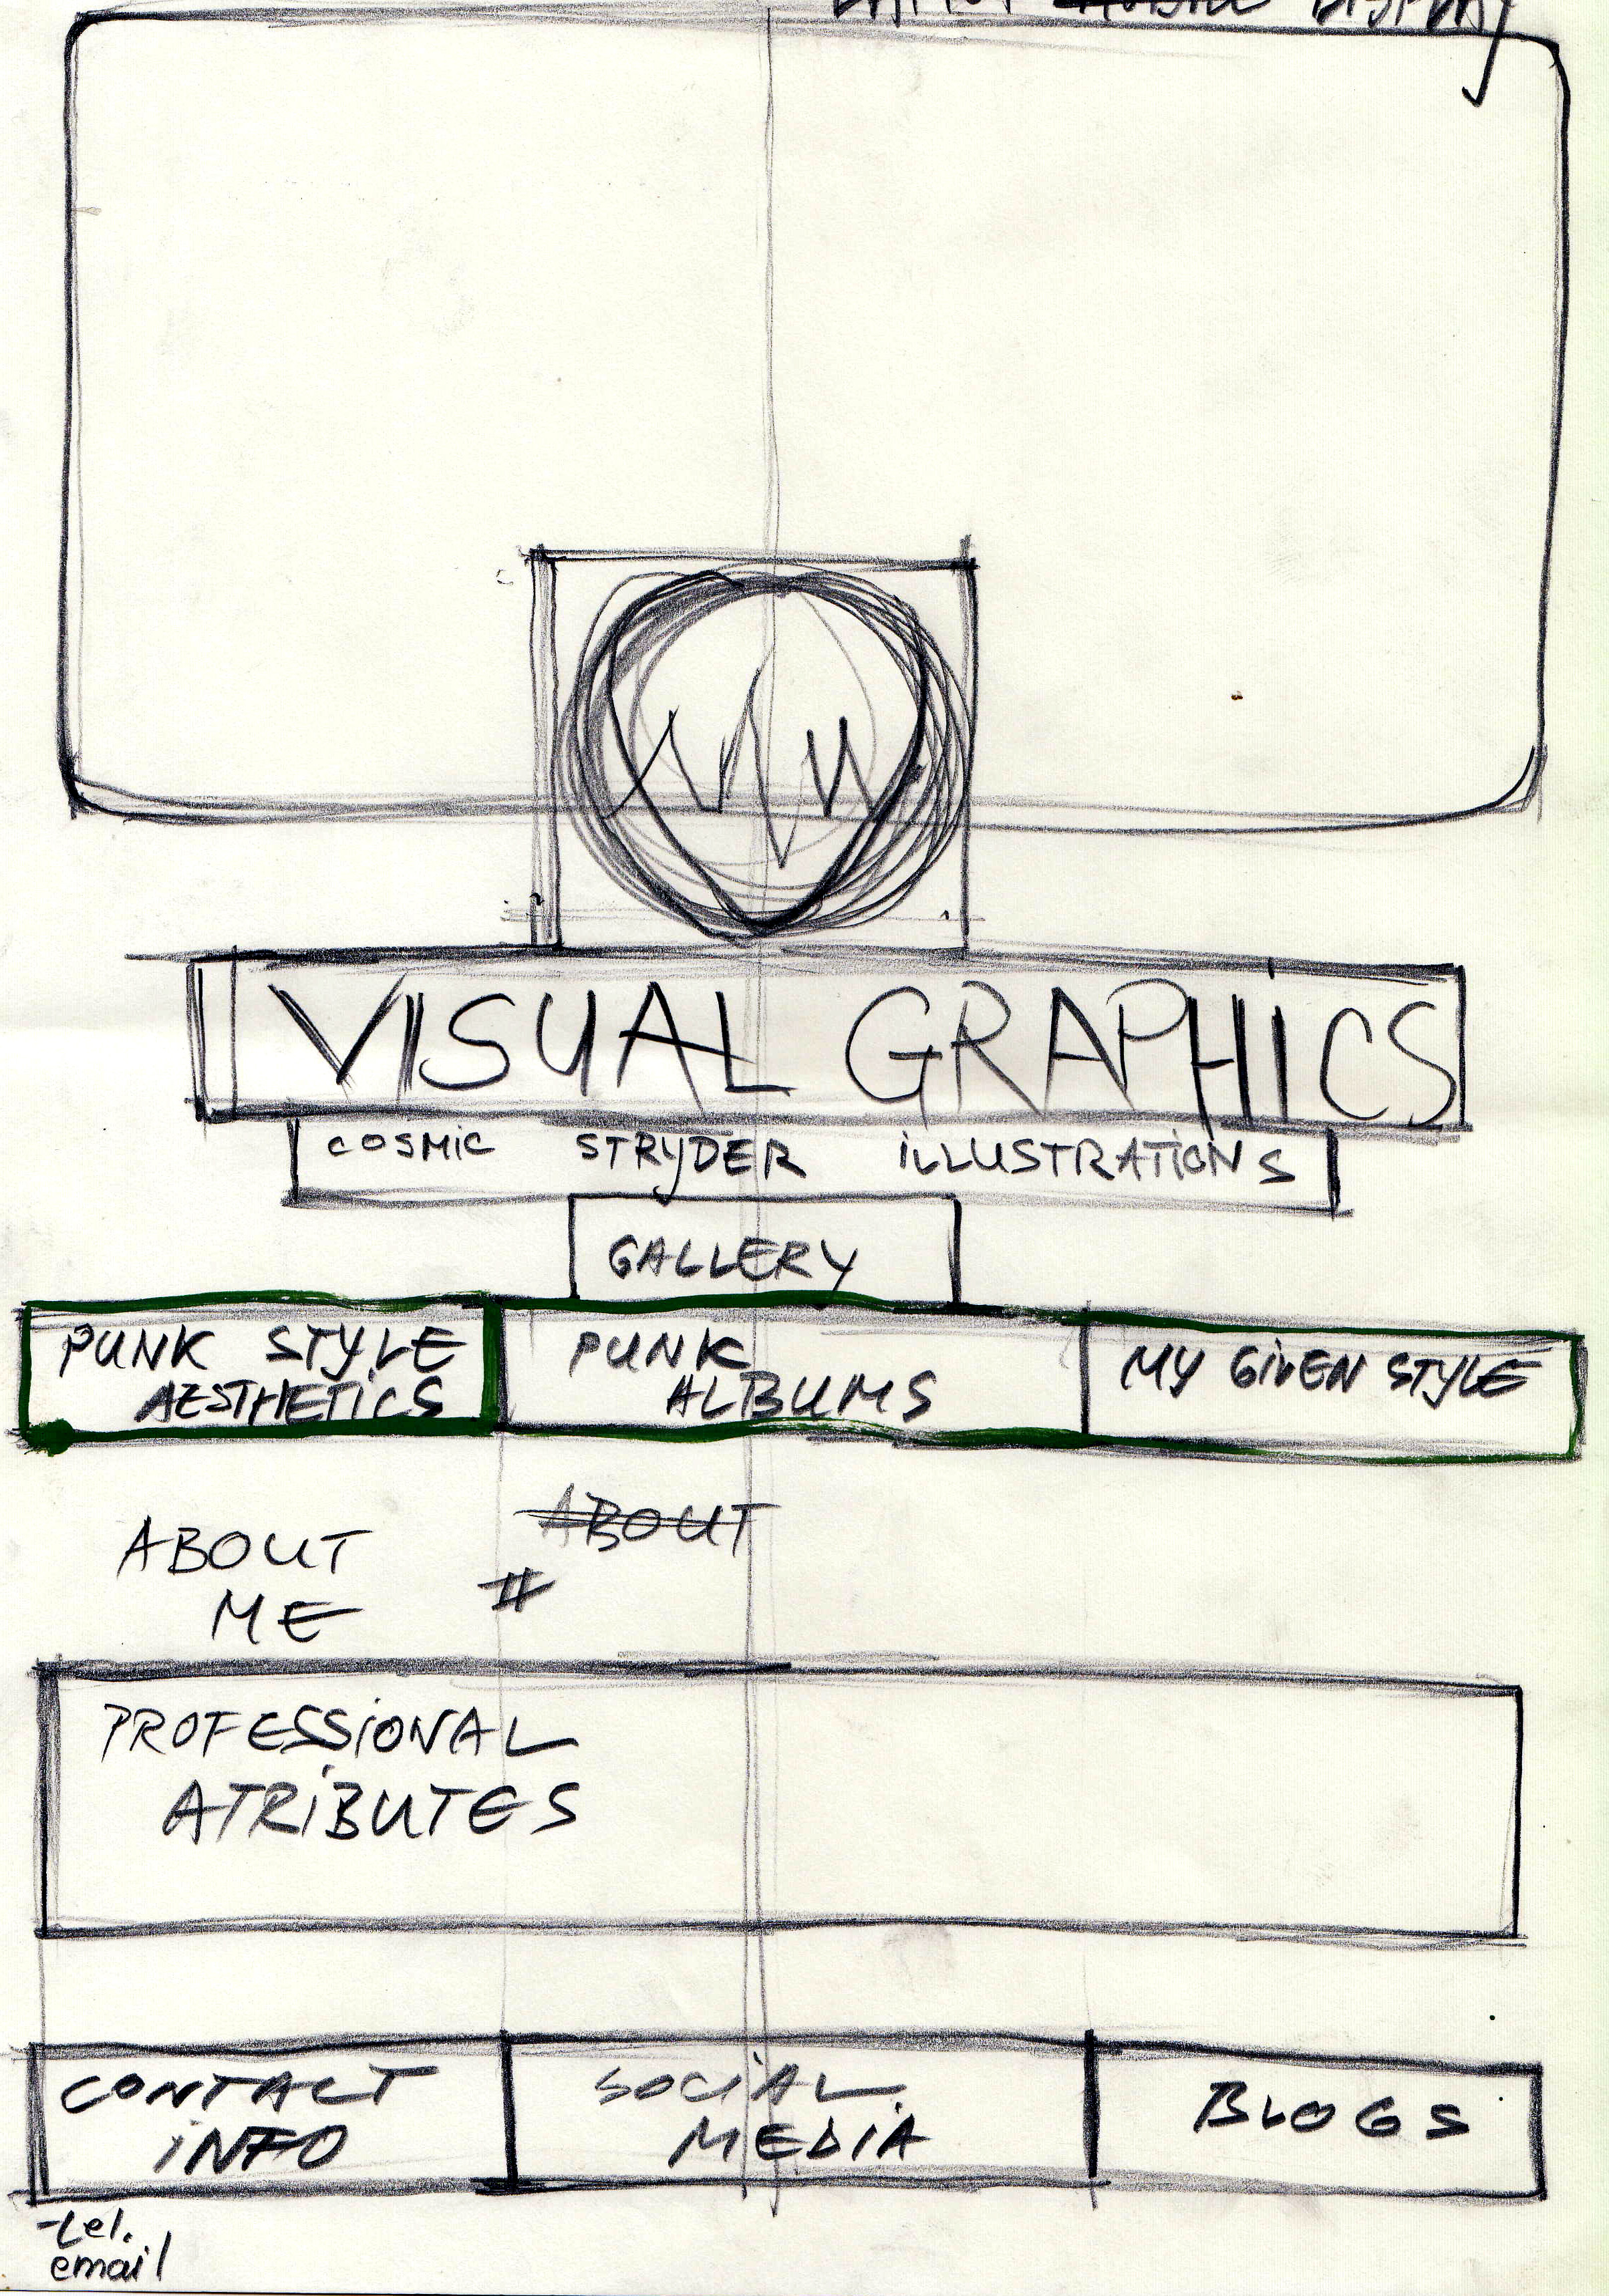 VISUAL GRAPHICS
COSMIC STRYDER ILLUSTRATIONS
GALLERY
PUNK STYLE
AESTHETICS
PUNK
ALBUMS
MY GIVEN STYLE
ABOUT
ME
ABOUT
#
PROFESSIONAL
ATRIBUTES
CONTACT
INFO
SOCIAL
MEDIA
BLOGS
tel.
email